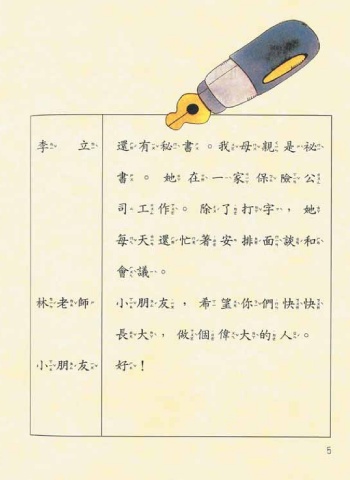 李立 還有秘書。我母親是秘
書。她在一家保險公
司工作。除了打字，她
每天還忙著安排面談和
會議。
林老師 小朋友，希望你們快快
長大，做個偉大的人。
小朋友 好！
5